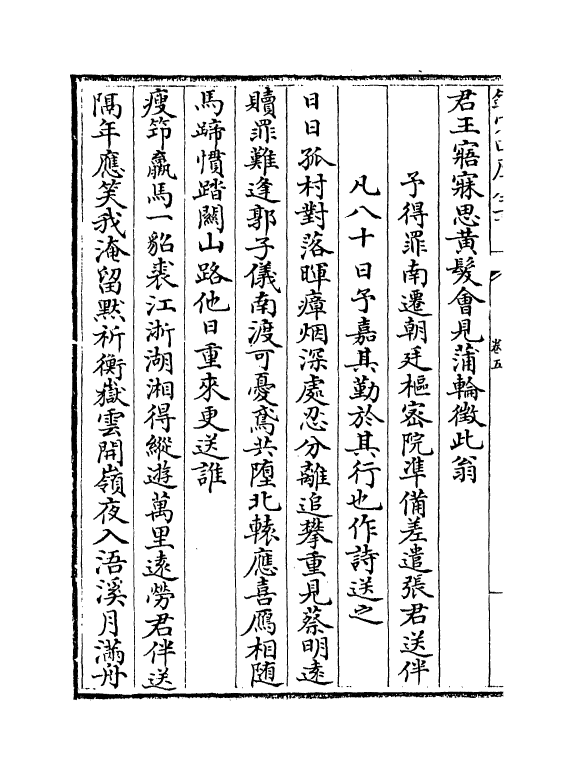 卷五
君王寤寐思黃髮會見蒲輪徵此翁
予得罪南遷朝廷樞宻院凖備差遣張君送伴
凡八十日予嘉其勤於其行也作詩送之
日日孤村對落暉瘴烟深處忍分離追攀重見蔡明逺
贖罪難逢郭子儀南渡可憂鳶共墮北轅應喜鴈相随
馬蹄慣踏關山路他日重來更送誰
瘦笻羸馬一貂裘江浙湖湘得縱遊萬里逺勞君伴送
隔年應笑我淹留黙祈衡嶽雲開嶺夜入浯溪月滿舟